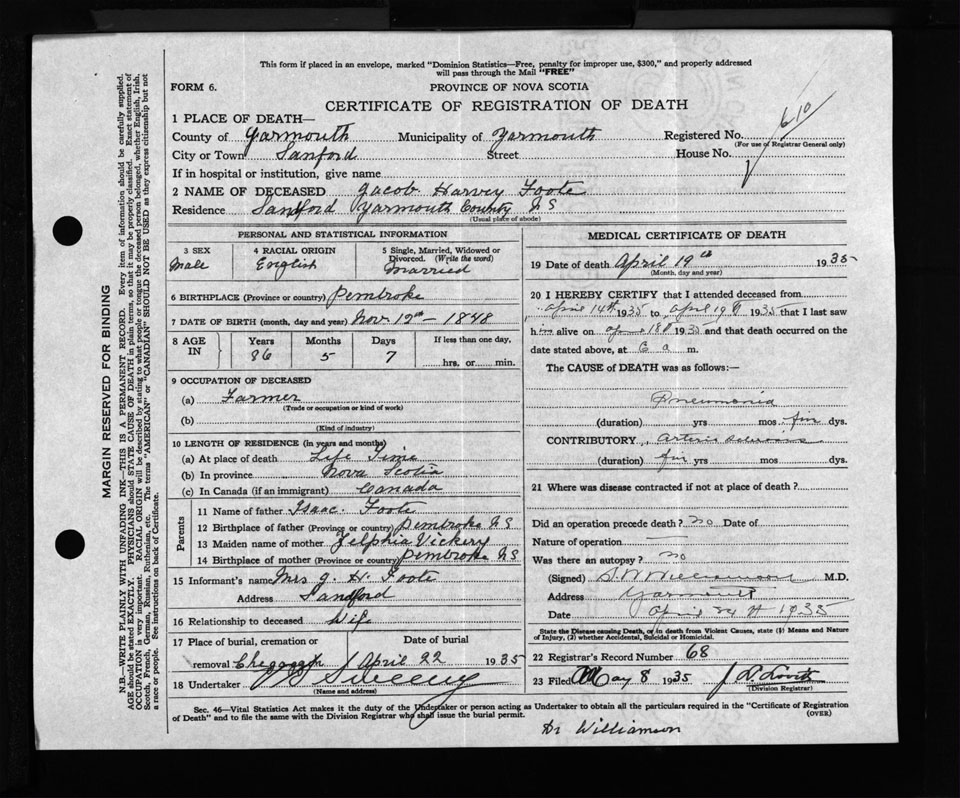 This form if placed in an envelope, marked "Dominion Statistics—Free, penalty for improper use, $300," and properly addressed
will pass through the Mail "FREE"
FORM 6. PROVINCE OF NOVA SCOTIA
CERTIFICATE OF REGISTRATION OF DEATH
1 PLACE OF DEATH— 610
County of Yarmouth Municipality of Yarmouth Registered No.
(For use of Registrar General only)
City or Town Sanford Street House No.
If in hospital or institution, give name
2 NAME OF DECEASED Jacob Harvey Foote
Residence Sandford Yarmouth County N S
(Usual place of abode)
PERSONAL AND STATISTICAL INFORMATION
3 SEX 4 RACIAL ORIGIN 5 Single, Married, Widowed or
Divorced. (Write the word)
Male English Married
6 BIRTHPLACE (Province or country) Pembroke
7 DATE OF BIRTH (month, day and year) Nov. 12th — 1848
8 AGE IN Years Months Days If less than one day,
86 5 7 hrs. or min.
9 OCCUPATION OF DECEASED
(a) Farmer
(Trade or occupation or kind of work)
(b)
(Kind of industry)
10 LENGTH OF RESIDENCE (in years and months)
(a) At place of death Life Time
(b) In province Nova Scotia
(c) In Canada (if an immigrant) Canada
Parents
11 Name of father Isaac Foote
12 Birthplace of father (Province or country) Pembroke N S
13 Maiden name of mother Zelphia Vickery
14 Birthplace of mother (Province or country) Pembroke N S
15 Informant's name Mrs J. H. Foote
Address Sandford
16 Relationship to deceased Wife
17 Place of burial, cremation or Date of burial
removal Chegoggin April 22 1935
18 Undertaker Sweeny
(Name and address)
MEDICAL CERTIFICATE OF DEATH
19 Date of death April 19th 1935
(Month, day and year)
20 I HEREBY CERTIFY that I attended deceased from
April 14th 1935 to April 19th 1935 that I last saw
him alive on Ap 18th 1935 and that death occurred on
date stated above, at 6 a m.
The CAUSE of DEATH was as follows:—
Pneumonia
(duration) yrs mos five dys.
CONTRIBUTORY Arterio sclerosis
(duration) yrs mos dys.
21 Where was disease contracted if not at place of death?
Did an operation precede death? no Date of
Nature of operation —
Was there an autopsy? no
(Signed) S. W Williamson M.D.
Address Yarmouth
Date April 24th 1935
State the Disease causing Death, or in death from Violent Causes, state (1) Means and Nature
of Injury, (2) whether Accidental, Suicidal or Homicidal.
22 Registrar's Record Number 68
23 Filed May 8 1935
(Division Registrar)
Sec. 46—Vital Statistics Act makes it the duty of the Undertaker or person acting as Undertaker to obtain all the particulars required in the "Certificate of Registration
of Death" and to file the same with the Division Registrar who shall issue the burial permit. (OVER)
Dr Williamson
MARGIN RESERVED FOR BINDING
N.B.—WRITE PLAINLY WITH UNFADING INK—THIS IS A PERMANENT RECORD. Every item of information should be carefully supplied.
AGE should be stated EXACTLY. PHYSICIANS should STATE CAUSE OF DEATH in plain terms, so that it may be properly classified. Exact statement of
OCCUPATION is very important. RACIAL ORIGIN will be described by stating to what people or tongue the deceased person belonged, whether English, Irish,
Scotch, French, German, Russian, Ruthenian, etc. The terms "AMERICAN" or "CANADIAN" SHOULD NOT BE USED as they express citizenship but not
a race or people. See instructions on back of Certificate.